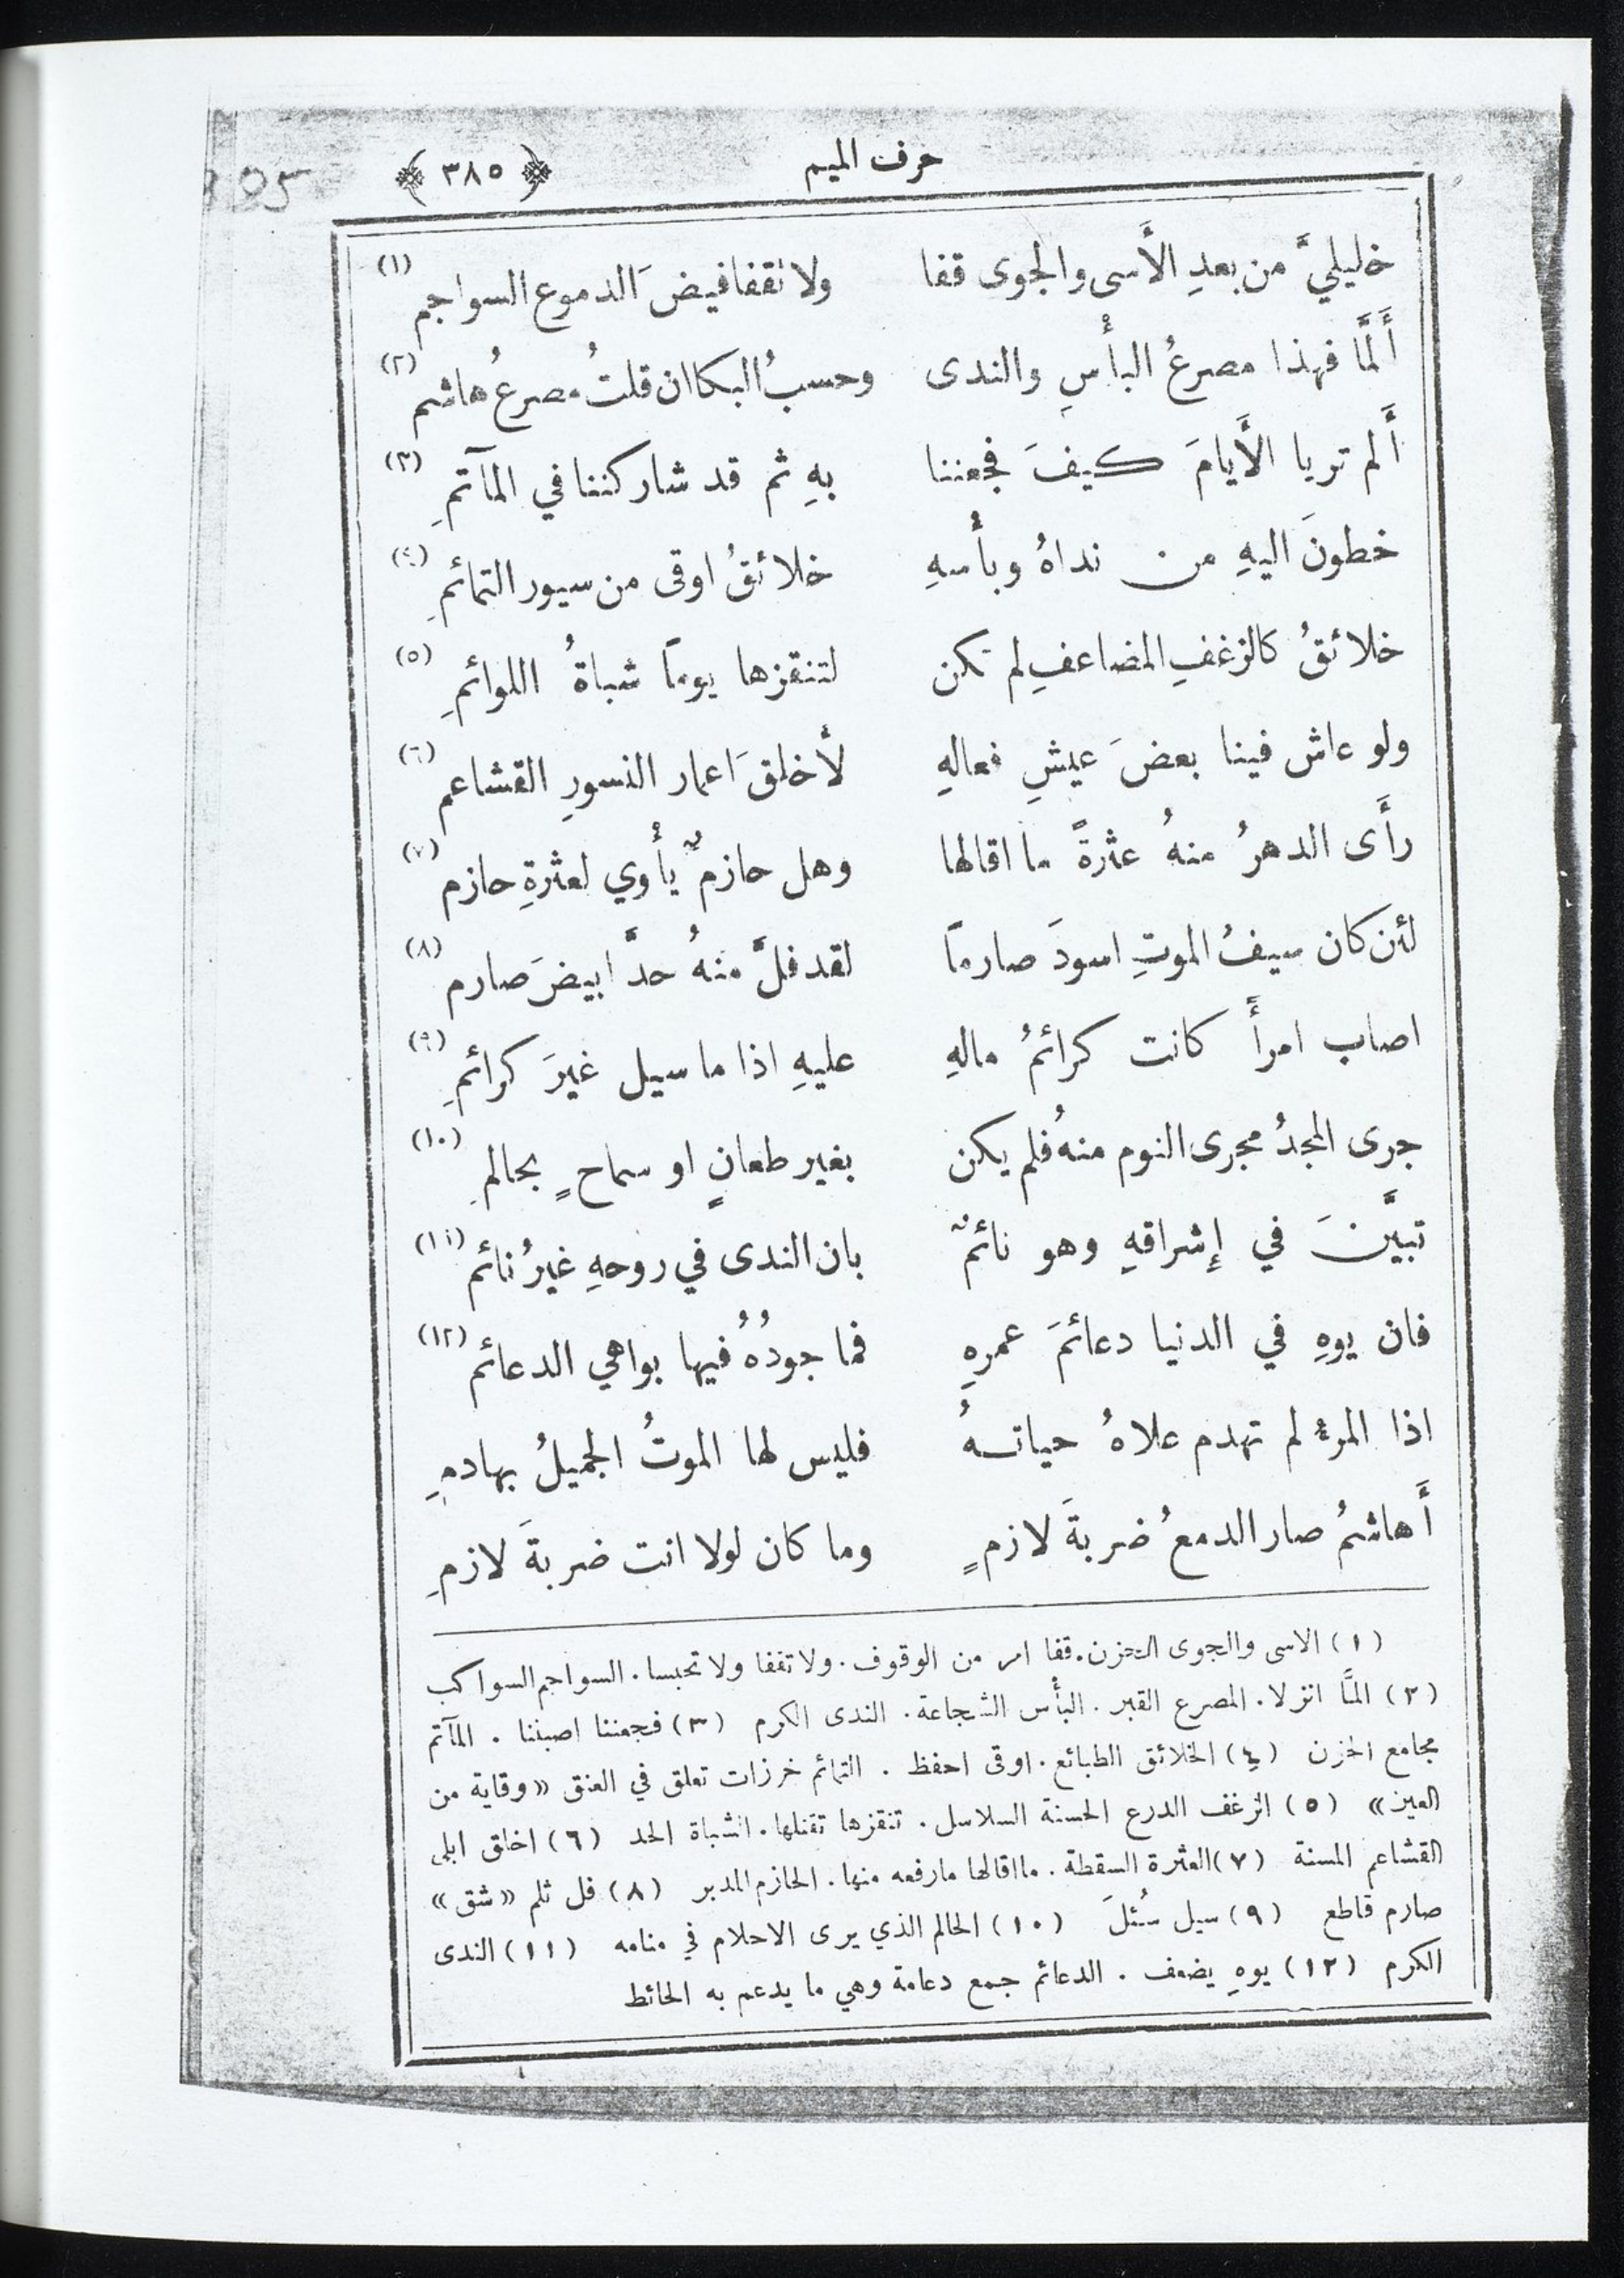 حرف الميم ﴿ ٣٨٥ ﴾
خليليَّ من بعدِ الأَسى والجوى قفا ولا نقفا فيضَ الدموع السواجم (١)
أَلمَّا فهذا مصرعُ البأْسِ والندى وحسبُ البكا ان قلتُ مصرعُ هاشم (٢)
أَلم تريا الأَيامَ كيفَ فجعننا بهِ ثم قد شاركننا في المآتمِ (٣)
خطونَ اليهِ من نداهُ وبأْسهِ خلائقُ اوقى من سيور التمائمِ (٤)
خلائقُ كالزغفِ المضاعفِ لم تكن لتنقزها يوماً شباةُ اللوائمِ (٥)
ولو عاش فينا بعضَ عيشِ فعالهِ لأَخلقَ اعمار النسورِ القشاعم (٦)
رأَى الدهرُ منهُ عثرةً ما اقالها وهل حازمٌ يأْوي لعثرةِ حازم (٧)
لئن كان سيفُ الموتِ اسودَ صارماً لقد فلَّ منهُ حدَّ ابيضَ صارم (٨)
اصاب امرأً كانت كرائمُ مالهِ عليهِ اذا ما سيل غيرَ كرائمِ (٩)
جرى المجدُ مجرى النوم منهُ فلم يكن بغير طعانٍ او سماحٍ بحالمِ (١٠)
تبيَّنَ في إشراقهِ وهو نائمٌ بان الندى في روحهِ غيرُ نائم (١١)
فان يوهِ في الدنيا دعائمَ عمرهِ فما جودُهُ فيها بواهي الدعائم (١٢)
اذا المرءُ لم تهدم علاهُ حياتهُ فليس لها الموتُ الجميلُ بهادمِ
أَهاشمُ صار الدمعُ ضربةَ لازمٍ وما كان لولا انت ضربةَ لازمِ
(١) الاسى والجوى الحزن. قفا امر من الوقوف. ولا تقفا ولا تحبسا. السواجم السواكب
(٢) المَّا انزلا. المصرع القبر. البأْس الشجاعة. الندى الكرم (٣) فجعننا اصبننا. المآتم
مجامع الحزن (٤) الخلائق الطبائع. اوقى احفظ. التمائم خرزات تعلق في العنق «وقاية من
العين» (٥) الزغف الدرع الحسنة السلاسل. تنقزها تقتلها. الشباة الحد (٦) اخلق ابلى
القشاعم المسنة (٧) العثرة السقطة. ما اقالها ما رفعه منها. الحازم المدبر (٨) فل ثلم «شق»
صارم قاطع (٩) سيل سُئلَ (١٠) الحالم الذي يرى الاحلام في منامه (١١) الندى
الكرم (١٢) يوهِ يضعف. الدعائم جمع دعامة وهي ما يدعم به الحائط